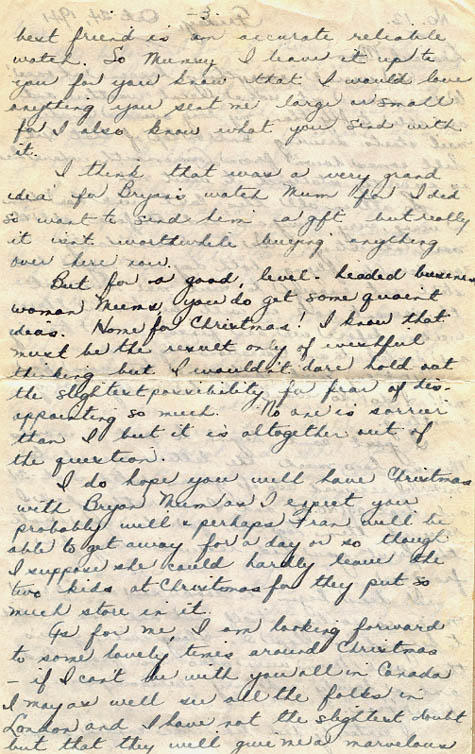 - 3 -
best friend is an accurate reliable
watch. So Mumsy I leave it up to
you for you know that I would love
anything you sent me large or small
for I also know what you send with
it.
I think that was a very grand
idea for Bryan's watch Mum for I did
so want to send him a gift but really
it isn't worthwhile buying anything
over here now.
But for a good, level-headed business
woman Mums, you do get some quaint
ideas. Home for Christmas! I know that
must be the result only of wishful
thinking but I wouldn't dare hold out
the slightest possibility for fear of dis-
appointing so much. No one is sorrier
than I but it is altogether out of
the question.
I do hope you will have Christmas
with Bryan Mum as I expect you
probably will & perhaps Fran will be
able to get away for a day or so though
I suppose she could hardly leave the
two kids at Christmas for they put so
much store in it.
As for me, I am looking forward
to some lovely times around Christmas
- if I can't be with you all in Canada
I may as well see all the folks in
London and I have not the slightest doubt
but that they will give me a marvelous